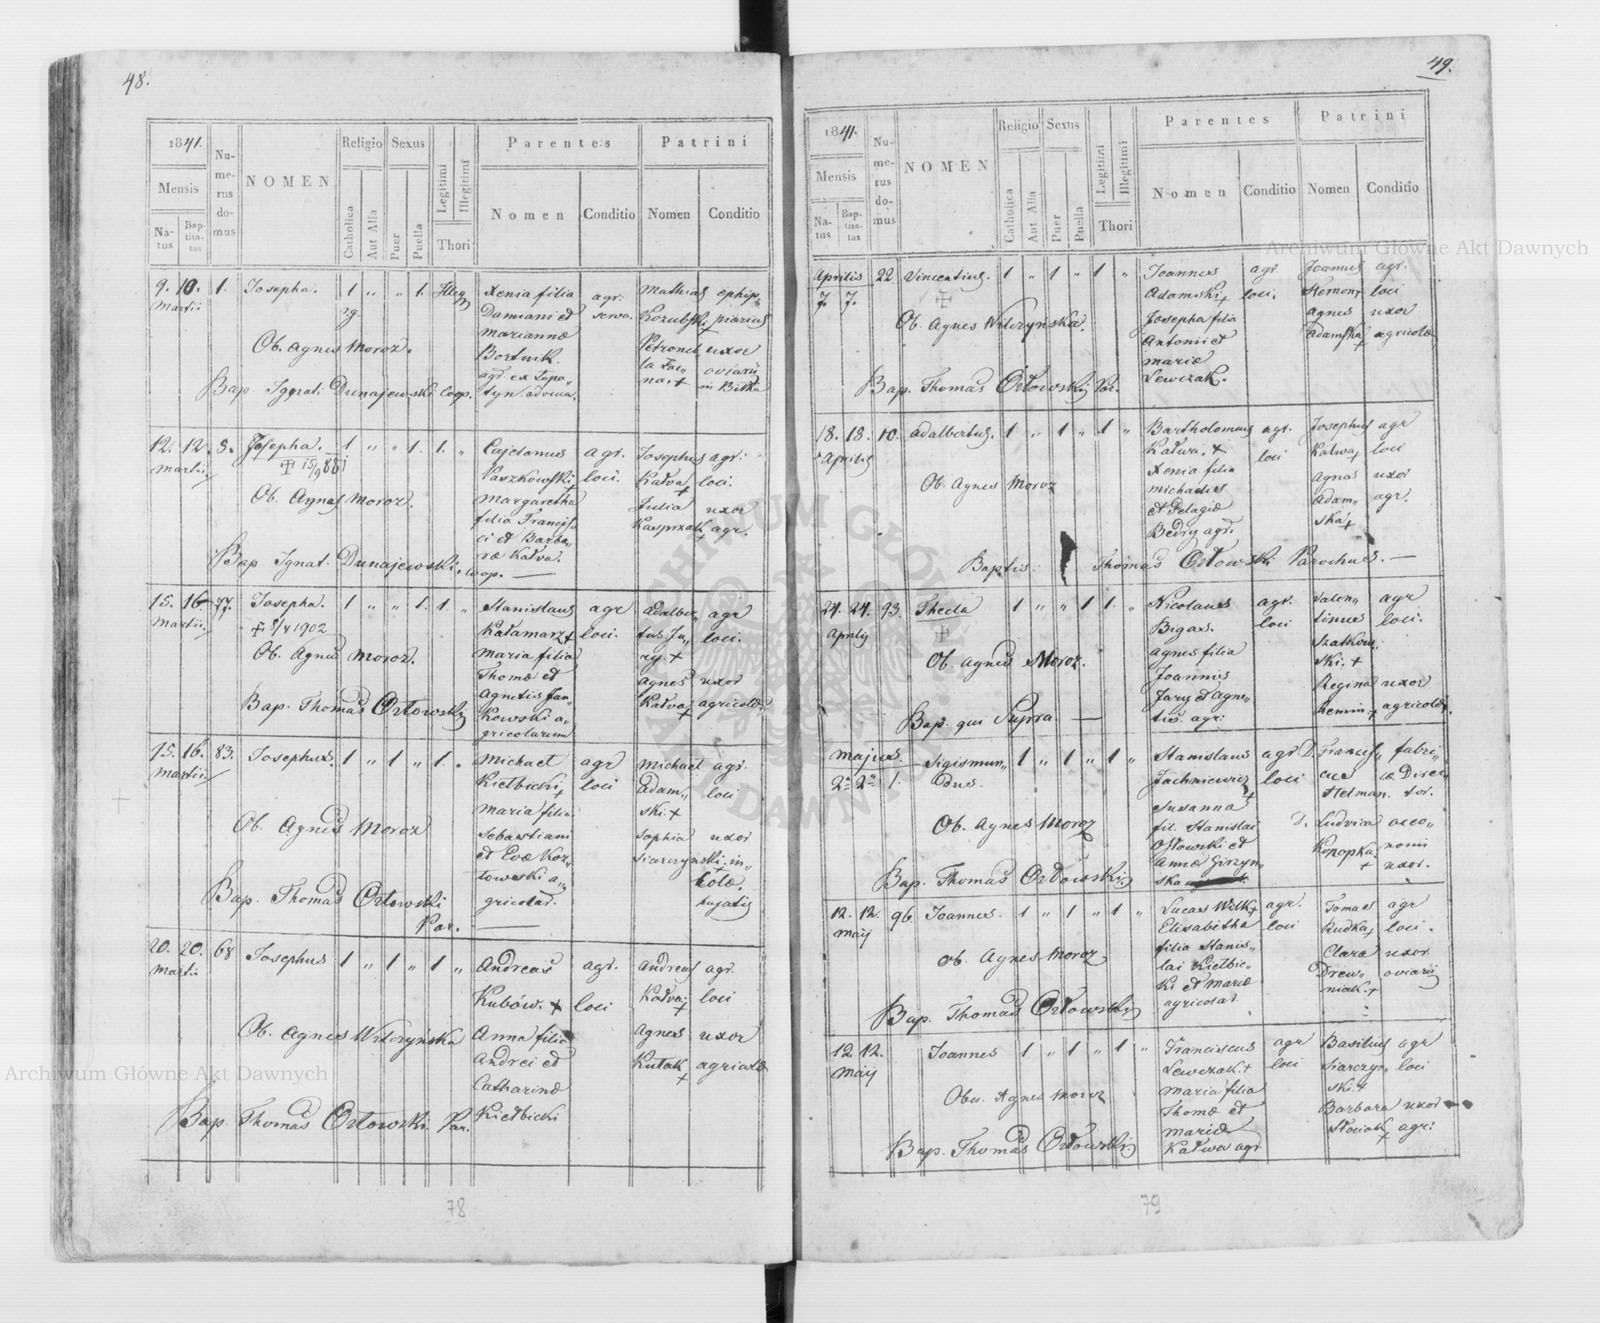 48.
1841.
Mensis
Natus
Baptisatus
Numerus domus
NOMEN
Religio
Catholica
Aut Alia
Sexus
Puer
Puella
Legitimi
Illegitimi
Thori
Parentes
Nomen
Conditio
Patrini
Nomen
Conditio
9. 10. 1. Josepha. 1 " " 1. Illeg Xenia filia agr: Mathias ephip
Martii Damiani et Kozubski + piarius
mariannæ Petronel uxor
Ob. Agnes Moroz. Bortnik.
Bap. Ignat: Dunajewski Coop.
12. 12. 8. Josepha. 1 " " 1. 1. " Cajetanus agr. Josephus agr:
Martii 15/9 881 Paszkowski + loci. Kałwa + loci.
Ob. Agnes Moroz. Margaretha Julia uxor
filia Francis Kasprzak + agr.
ci et Barba„
ræ Kałwa.
Bap. Ignat: Dunajewski. Coop. —
15. 16 77. Josepha. 1 " " 1. 1. " Stanislaus agr adalber„ agr
Martii. 8/4 1902 Kałamarz + loci. tus Ja„ loci.
Ob. Agnes Moroz. Maria filia ry. +
Thomæ et Agnes uxor
Agnetis Jan„ Kałwa + agricolæ
Bap. Thomas Orłowski kowski a„
gricolarum
15. 16. 83. Josephus. 1 " 1 " 1. " Michael agr Michael agr.
Martii Kiełbicki + loci Adam„ loci
Maria filia ski. +
Ob. Agnes Moroz Sebastiani Sophia uxor
et Evæ Koz„ Siarczynski. in„
łowski a„ colæ.
Bap. Thomas Orłowski Par. gricolar. hujatis
20. 20. 68 Josephus 1 " 1 " 1 " Andreas agr. Andreas agr.
Martii Kubów. + loci Kałwa + loci
Ob. Agnes Wilczyńska Anna filia Agnes uxor
Andrei et Kułak + agricolæ
Catharinæ
Bap Thomas Orłowski. Par. Kiełbicki
78
49.
1841.
Mensis
Natus
Baptisatus
Numerus domus
NOMEN
Religio
Catholica
Aut Alia
Sexus
Puer
Puella
Legitimi
Illegitimi
Thori
Parentes
Nomen
Conditio
Patrini
Nomen
Conditio
Aprilis 22 Vincentius. 1 " 1 " 1 " Joannes agr Joannes agr.
7. 7. Adamski + loci. loci
Ob. Agnes Wilczyńska. Josepha filia Agnes uxor
Antonii et Adamska + agricolæ
mariæ
Lewczak.
Bap. Thomas Orłowski Par.
18. 18. 10. Adalbertus. 1 " 1 " 1 " Bartholomeus agr. Josephus agr
Aprilis Kałwa. + loci Kałwa + loci
Xenia filia Agnes uxor
Ob. Agnes Moroz Michaelis Adam„ agr.
et Pelagiæ ska +
Bedry agr.
Baptis: Thomas Orłowski Parochus. —
24. 24. 93. Thecla 1 " " 1 1. " Nicolaus agr. Valen„ agr
Aprilis Bigas. loci tinus loci.
Agnes filia Szatkow
Ob. Agnes Moroz. Joannis ski. +
Jary et Agne„ Regina uxor
tis agr: + agricolæ.
Bap. qui Supra —
Majus. Sigismun„ 1 " 1 " 1 " Stanislaus agr. D. Francis„ fabri„
2a 2a 1. dus. Jachniewicz + loci cus æ Direc
Susanna Helman. tor.
Ob. Agnes Moroz fil. Stanislai D. Ludvica oeco„
Osłowski et Konopka nomi
Annæ + uxor.
Bap. Thomas Orłowski
12. 12. 96 Joannes. 1 " 1 " 1 " Lucas Wilk + agr. Tomas agr
Maij Elisabetha loci Rudka + loci.
filia Stanis„ Clara uxor
Ob. Agnes Moroz lai Kiełbic„ Drew„ oviarij
ki et Mariæ niak. +
Bap. Thomas Orłowski agricolar.
12. 12. Joannes 1 " 1 " 1 " Franciscus agr Basilius agr
Maij Lewczak. + loci Siarczyn„ loci
Maria filia ski. +
Obs. Agnes Moroz Thomæ et Barbara uxor
Mariæ + agr:
Bap. Thomas Orłowski Kałwa agr.
79
Archiwum Główne Akt Dawnych
Archiwum Główne Akt Dawnych
ARCHIWUM GŁÓWNE AKT DAWNYCH